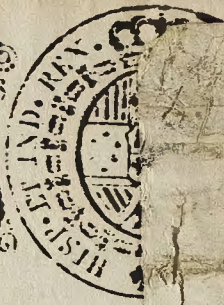 HISP. ET IND. REX.